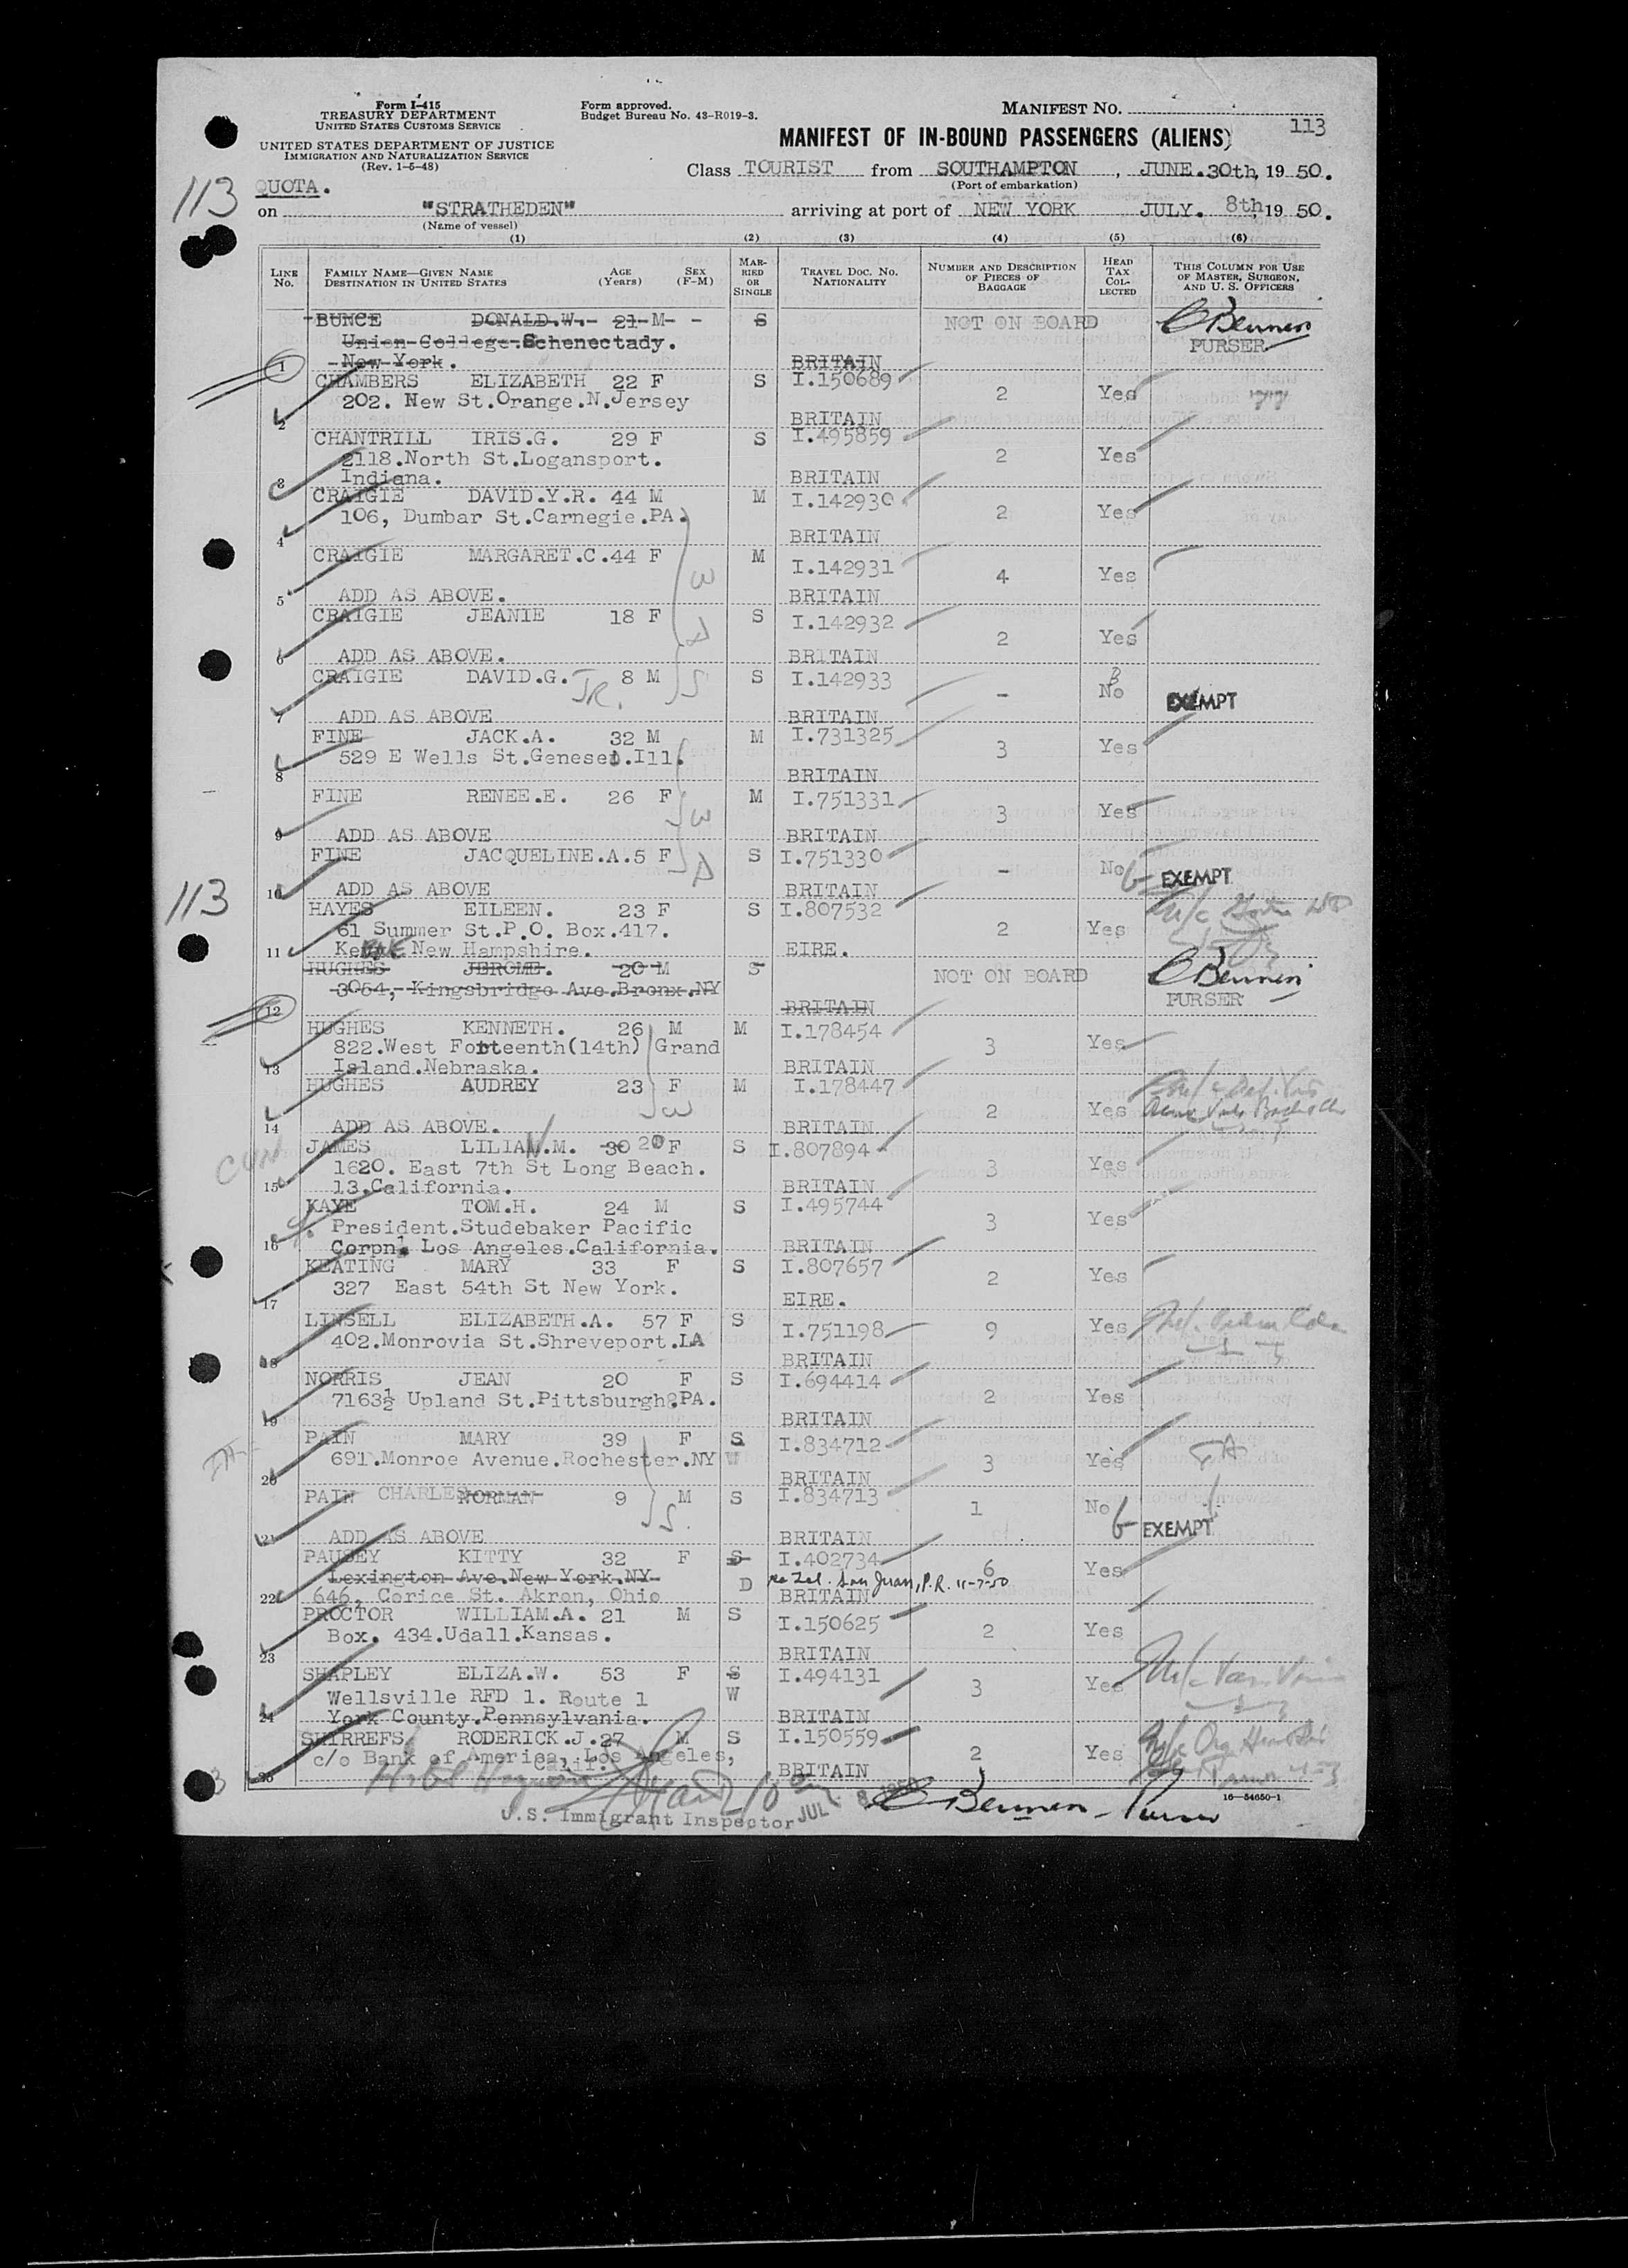 Form I-415
TREASURY DEPARTMENT
UNITED STATES CUSTOMS SERVICE
UNITED STATES DEPARTMENT OF JUSTICE
IMMIGRATION AND NATURALIZATION SERVICE
(Rev. 1-5-48)
Form approved.
Budget Bureau No. 43-R019-3.
MANIFEST NO.
113
MANIFEST OF IN-BOUND PASSENGERS (ALIENS)
Class TOURIST from SOUTHAMPTON, JUNE.30th, 19 50.
(Port of embarkation)
113
QUOTA.
on "STRATHEDEN" arriving at port of NEW YORK JULY. 8th, 19 50.
(Name of vessel)
(1) (2) (3) (4) (5) (6)
LINE NO. FAMILY NAME—GIVEN NAME DESTINATION IN UNITED STATES AGE (Years) SEX (F-M) MARRIED OR SINGLE TRAVEL DOC. NO. NATIONALITY NUMBER AND DESCRIPTION OF PIECES OF BAGGAGE HEAD TAX COLLECTED THIS COLUMN FOR USE OF MASTER, SURGEON, AND U. S. OFFICERS
BUNCE DONALD.W. 21 M S NOT ON BOARD
Union College.Schenectady. PURSER
1 New York. BRITAIN
CHAMBERS ELIZABETH 22 F S I.150689
202. New St.Orange.N.Jersey 2 Yes
2 BRITAIN
CHANTRILL IRIS.G. 29 F S I.495859
2118.North St.Logansport. 2 Yes
3 Indiana. BRITAIN
CRAIGIE DAVID.Y.R. 44 M M I.142930
106, Dumbar St.Carnegie.PA. 2 Yes
4 BRITAIN
CRAIGIE MARGARET.C. 44 F M I.142931
W 4 Yes
5 ADD AS ABOVE. BRITAIN
CRAIGIE JEANIE 18 F S I.142932
D 2 Yes
6 ADD AS ABOVE. BRITAIN
CRAIGIE DAVID.G. JR. 8 M S S I.142933
- No EXEMPT
7 ADD AS ABOVE BRITAIN
FINE JACK.A. 32 M M I.731325
529 E Wells St.Geneseo.Ill. 3 Yes
8 BRITAIN
FINE RENEE.E. 26 F M I.751331
W 3 Yes
9 ADD AS ABOVE BRITAIN
FINE JACQUELINE.A. 5 F D S I.751330
- No EXEMPT
113
10 ADD AS ABOVE BRITAIN
HAYES EILEEN. 23 F S I.807532
61 Summer St.P.O. Box.417. 2 Yes
11 Keene New Hampshire. EIRE.
HUGHES JEROME. 20 M S NOT ON BOARD
3054, Kingsbridge Ave.Bronx.NY PURSER
12 BRITAIN
HUGHES KENNETH. 26 M M I.178454
822.West Forteenth(14th) Grand 3 Yes
13 Island.Nebraska. BRITAIN
HUGHES AUDREY 23 F M I.178447
W 2 Yes
14 ADD AS ABOVE. BRITAIN
JAMES LILIAN.M. 30 20 F S I.807894
1620. East 7th St Long Beach. 3 Yes
15 13.California. BRITAIN
KAYE TOM.H. 24 M S I.495744
President.Studebaker Pacific 3 Yes
16 Corpn. Los Angeles.California. BRITAIN
KEATING MARY 33 F S I.807657
327 East 54th St New York. 2 Yes
17 EIRE.
LINSELL ELIZABETH.A. 57 F S I.751198
402.Monrovia St.Shreveport.LA 9 Yes
18 BRITAIN
NORRIS JEAN 20 F S I.694414
7163½ Upland St.Pittsburgh.PA. 2 Yes
19 BRITAIN
PAIN MARY 39 F S I.834712
691.Monroe Avenue.Rochester.NY W 3 Yes
20 BRITAIN
PAIN CHARLES NORMAN 9 M S I.834713
S. 1 No EXEMPT
21 ADD AS ABOVE BRITAIN
PAUSEY KITTY 32 F S I.402734
Lexington Ave.New York.NY D 6 Yes
San Juan, P.R. 11-7-50
22 646, Corice St. Akron, Ohio BRITAIN
PROCTOR WILLIAM.A. 21 M S I.150625
Box. 434.Udall.Kansas. 2 Yes
23 BRITAIN
SHAPLEY ELIZA.W. 53 F S I.494131
Wellsville RFD 1. Route 1 W 3 Yes
24 York County.Pennsylvania. BRITAIN
SHIRREFS RODERICK.J. 27 M S I.150559
c/o Bank of America, Los Angeles, 2 Yes
25 Calif. BRITAIN
U.S. Immigrant Inspector JUL 8 1950
16—54650-1